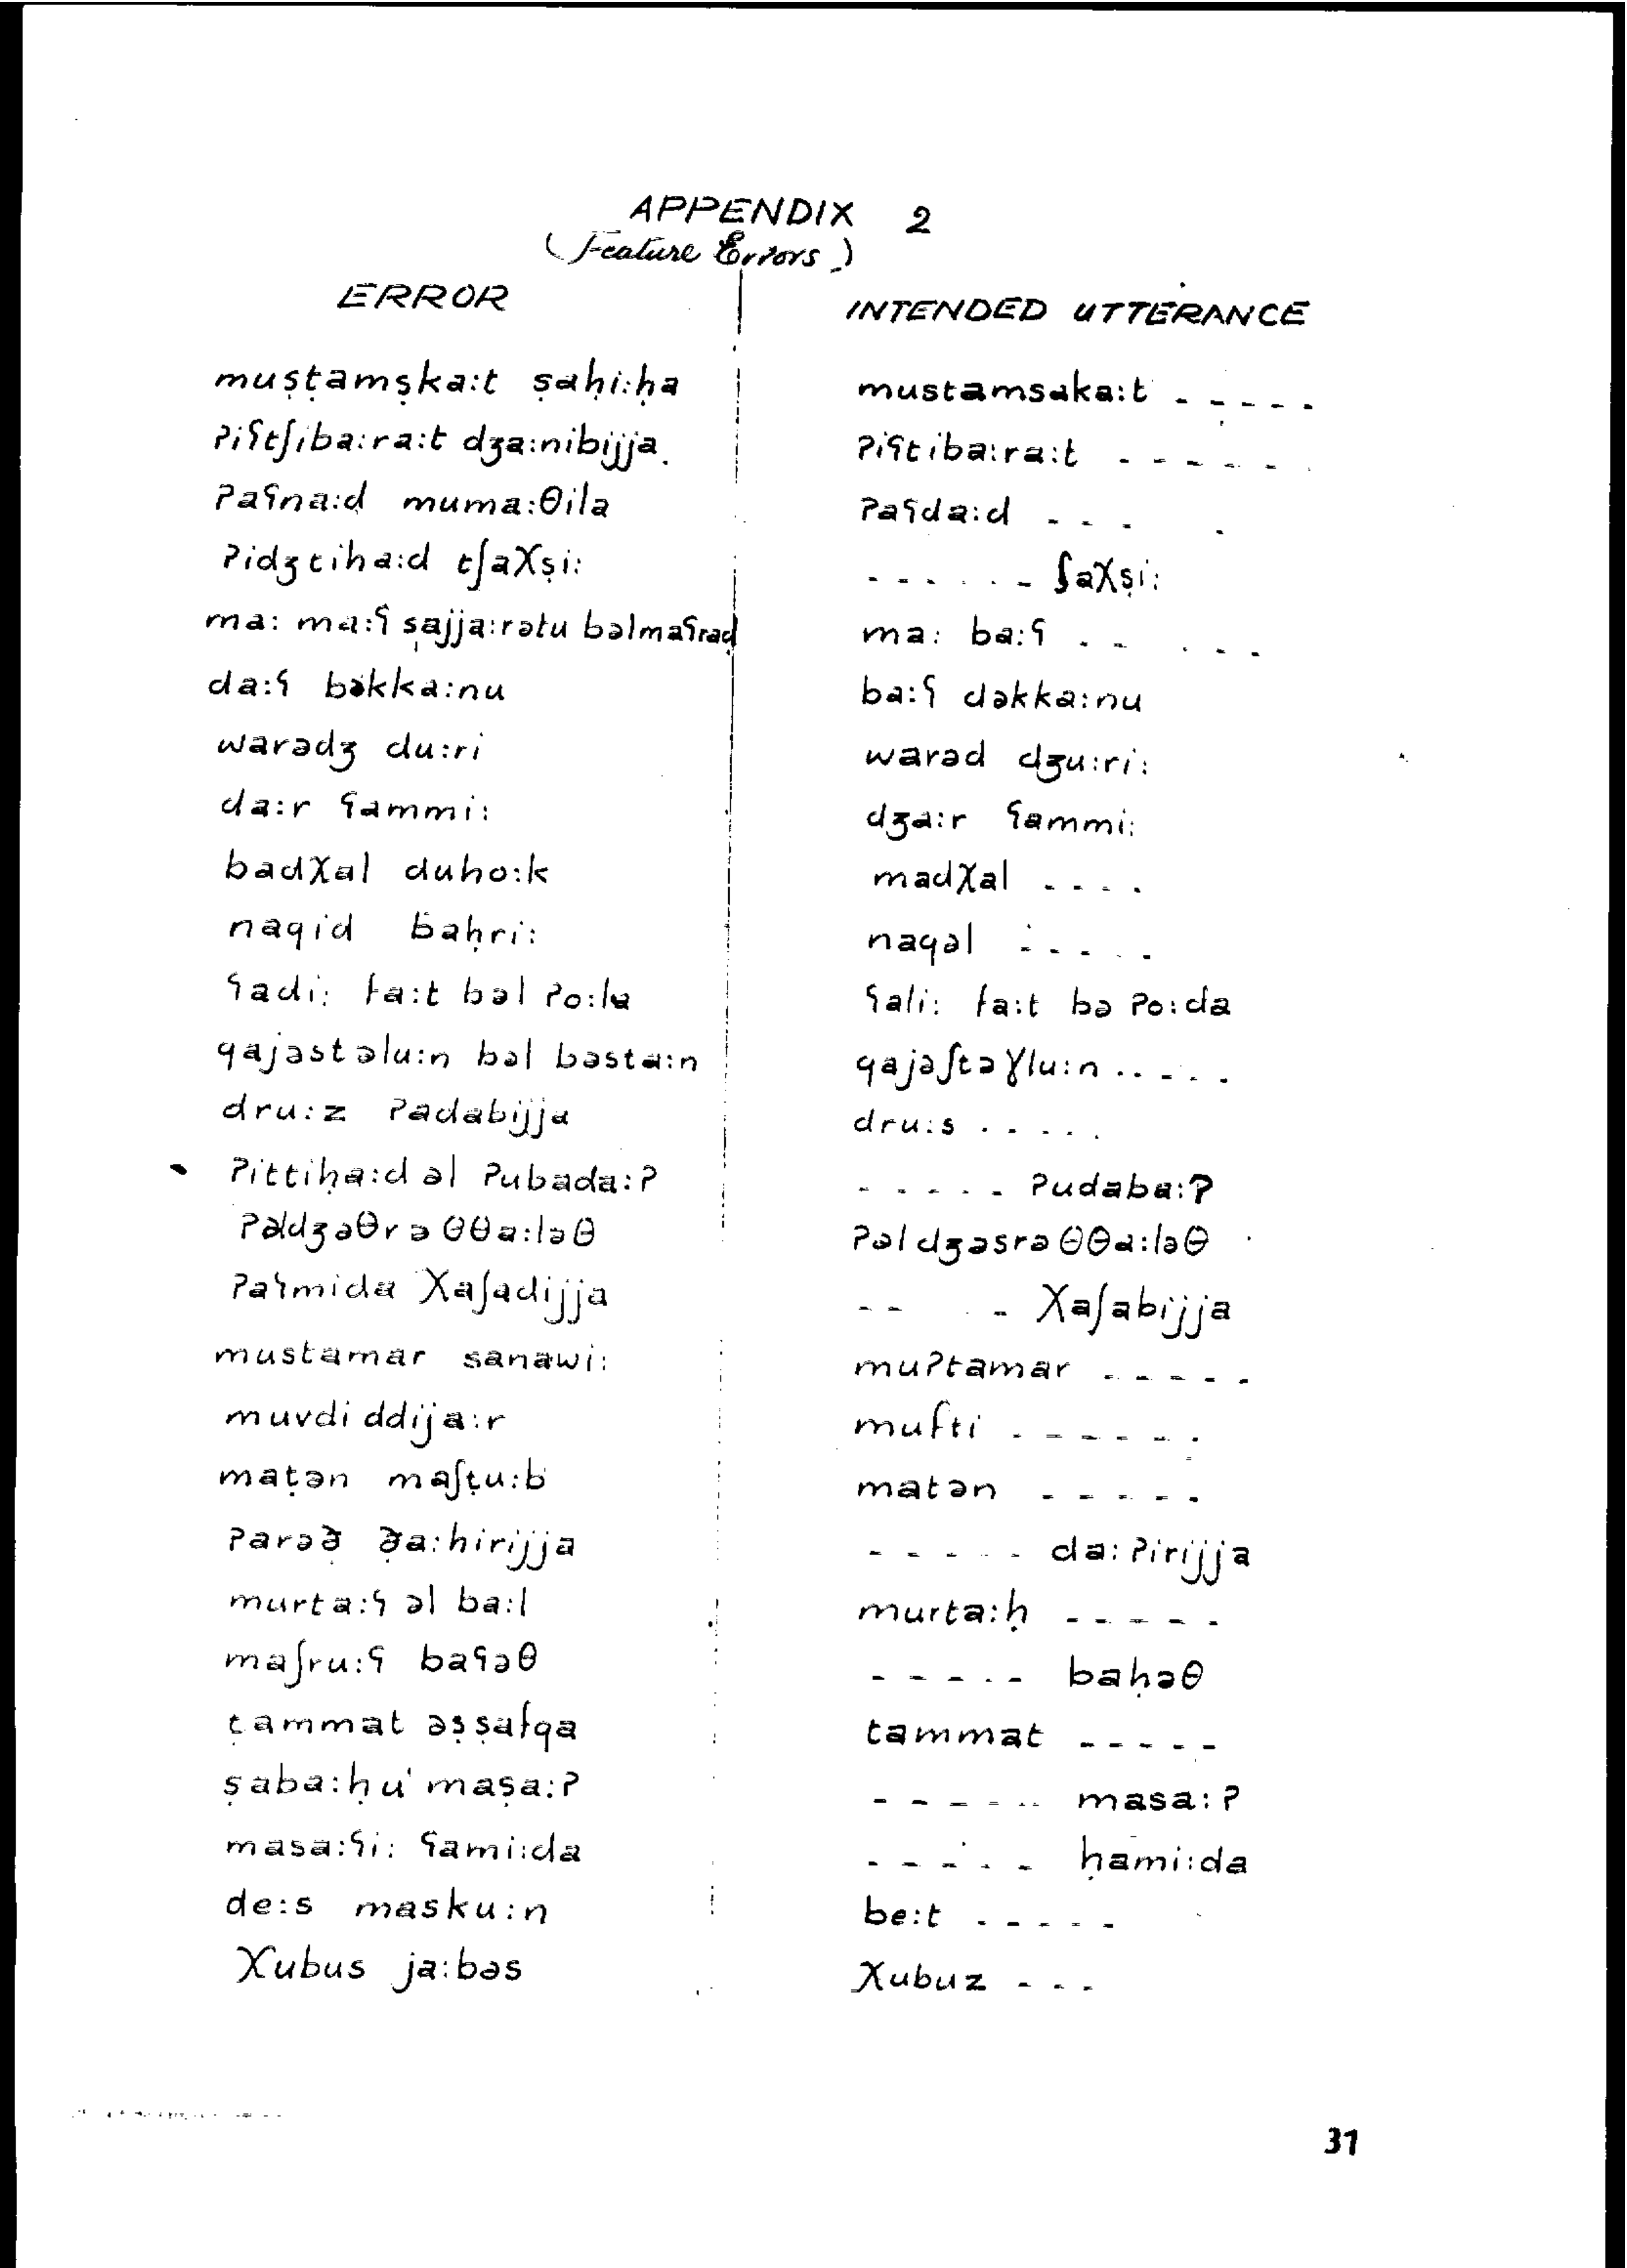 APPENDIX 2
(Feature Errors)
ERROR INTENDED UTTERANCE
muṣṭamṣka:t ṣaḥi:ḥa mustamsaka:t - - - - -
ʔiʕtʃiba:ra:t dʒa:nibijja. ʔiʕtiba:ra:t - - - - - -
ʔaʕna:d muma:θila ʔaʕda:d - - -
ʔidʒtiha:d tʃaχṣi: - - - - - - ʃaχṣi:
ma: ma:ʕ ṣajja:rətu bəlmaʕraḍ ma: ba:ʕ - - - - -
da:ʕ bəkka:nu ba:ʕ dəkka:nu
warədʒ du:ri warəd dʒu:ri:
da:r ʕammi: dʒa:r ʕammi:
badχal duho:k madχal - - - -
naqid baḥri: naqəl - - - - -
ʕadi: fa:t bəl ʔo:la ʕali: fa:t bə ʔo:da
qajəstəlu:n bəl bəsta:n qajəʃtəɣlu:n - - - - -
dru:z ʔadabijja dru:s - - - - -
ʔittiḥa:d əl ʔubada:ʔ - - - - - ʔudaba:ʔ
ʔəldʒəθrə θθa:ləθ ʔəl dʒəsrə θθa:ləθ
ʔaʕmida χaʃadijja - - - - χaʃabijja
mustamar sanawi: muʔtamar - - - - -
muvdi ddija:r mufti - - - - - -
maṭən maʃṭu:b matən - - - - -
ʔarəð̣ ð̣a:hirijja - - - - - da:ʔirijja
murta:ʕ əl ba:l murta:ḥ - - - - -
maʃru:ʕ baʕəθ - - - - - baḥəθ
ṭammat əṣṣafqa tammat - - - - -
ṣaba:ḥu' maṣa:ʔ - - - - - - masa:ʔ
masa:ʕi: ʕami:da - - - - - ḥami:da
de:s masku:n be:t - - - - -
χubus ja:bəs χubuz - - -
31